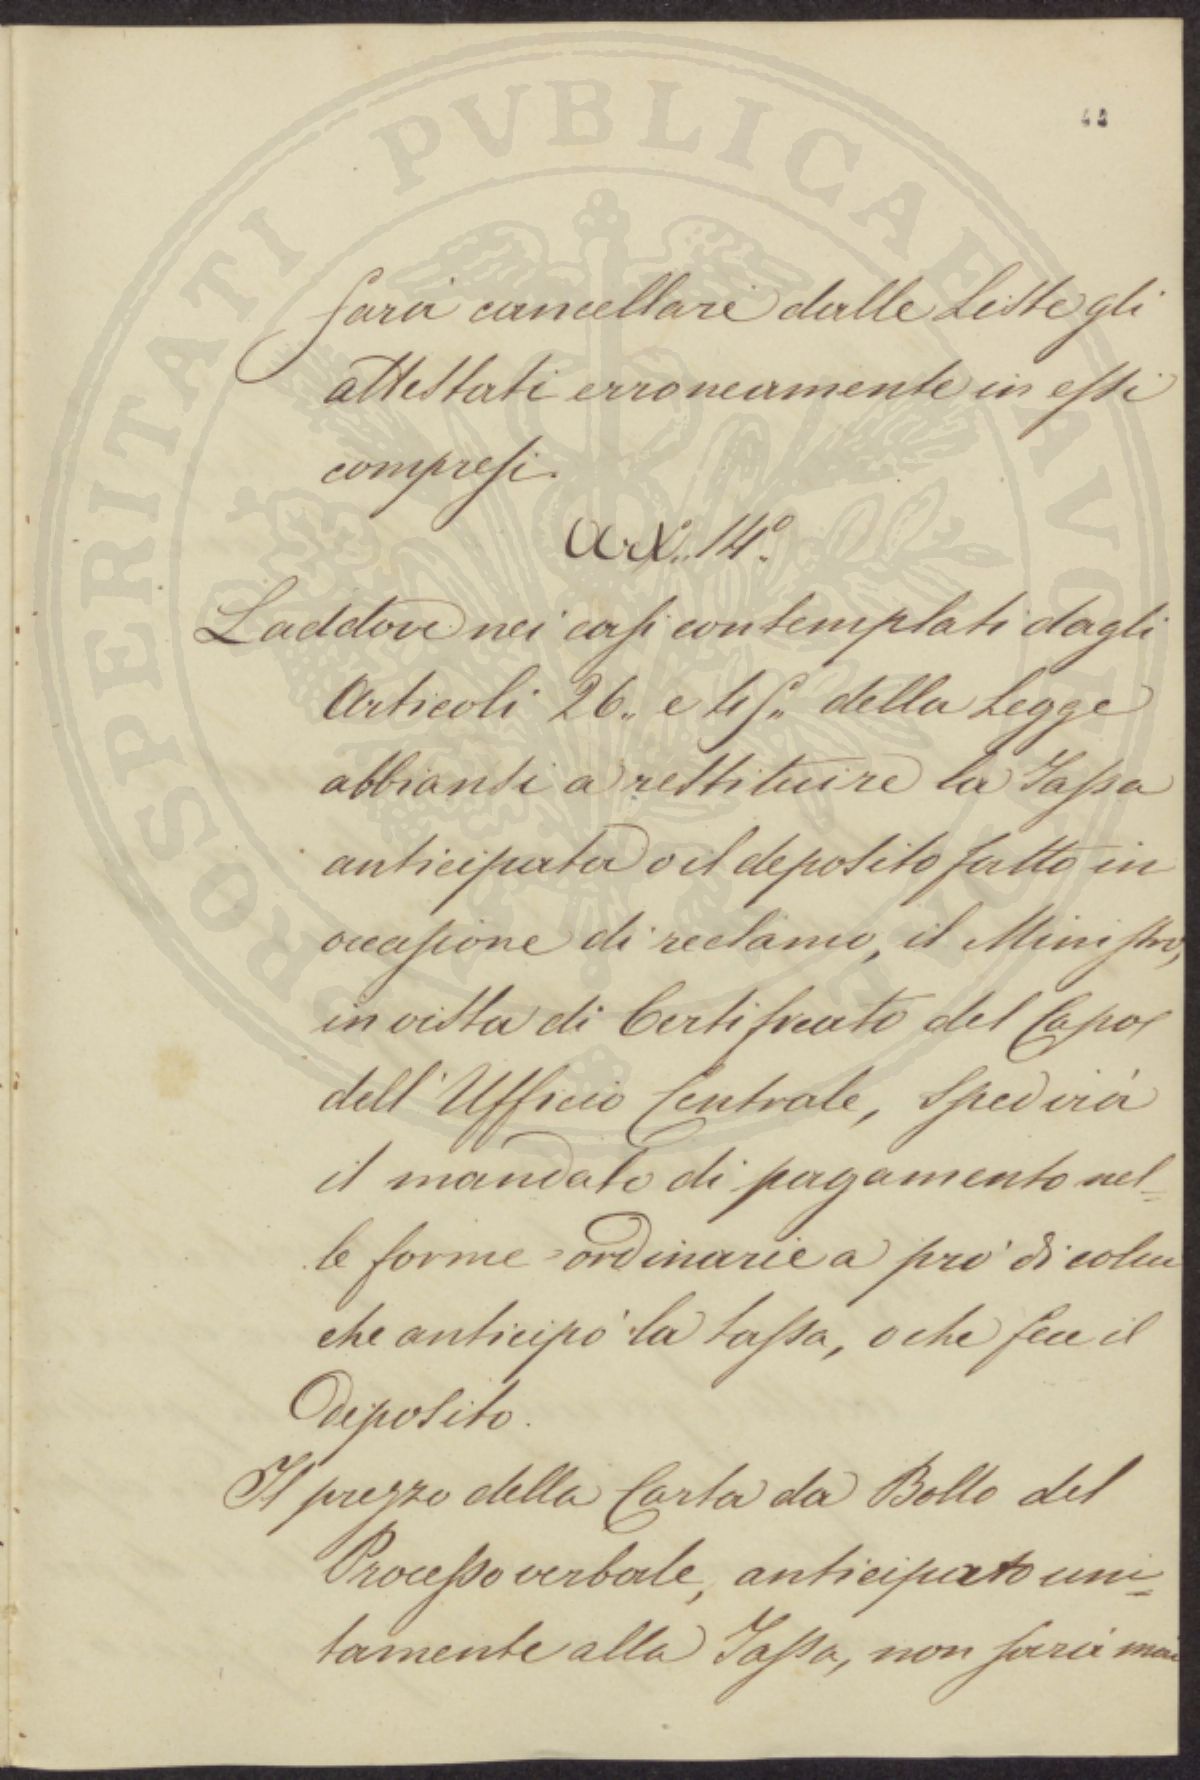 42
PROSPERITATI PVBLICAE AVGENDAE
farà cancellare dalle Liste gli
attestati erroneamente in essi
compresi.
Art.° 14.°
Laddove nei casi contemplati dagli
Articoli 26., e 45., della Legge
abbiansi a restituire la Tassa
anticipata o il deposito fatto in
occasione di reclamo, il Ministro,
in vista di Certificato del Capo
dell'Ufficio Centrale, spedirà
il mandato di pagamento nel=
le forme ordinarie a pro' di colui
che anticipò la tassa, o che fece il
Deposito.
Il prezzo della Carta da Bollo del
Processo verbale, anticipato uni=
tamente alla Tassa, non sarà mai